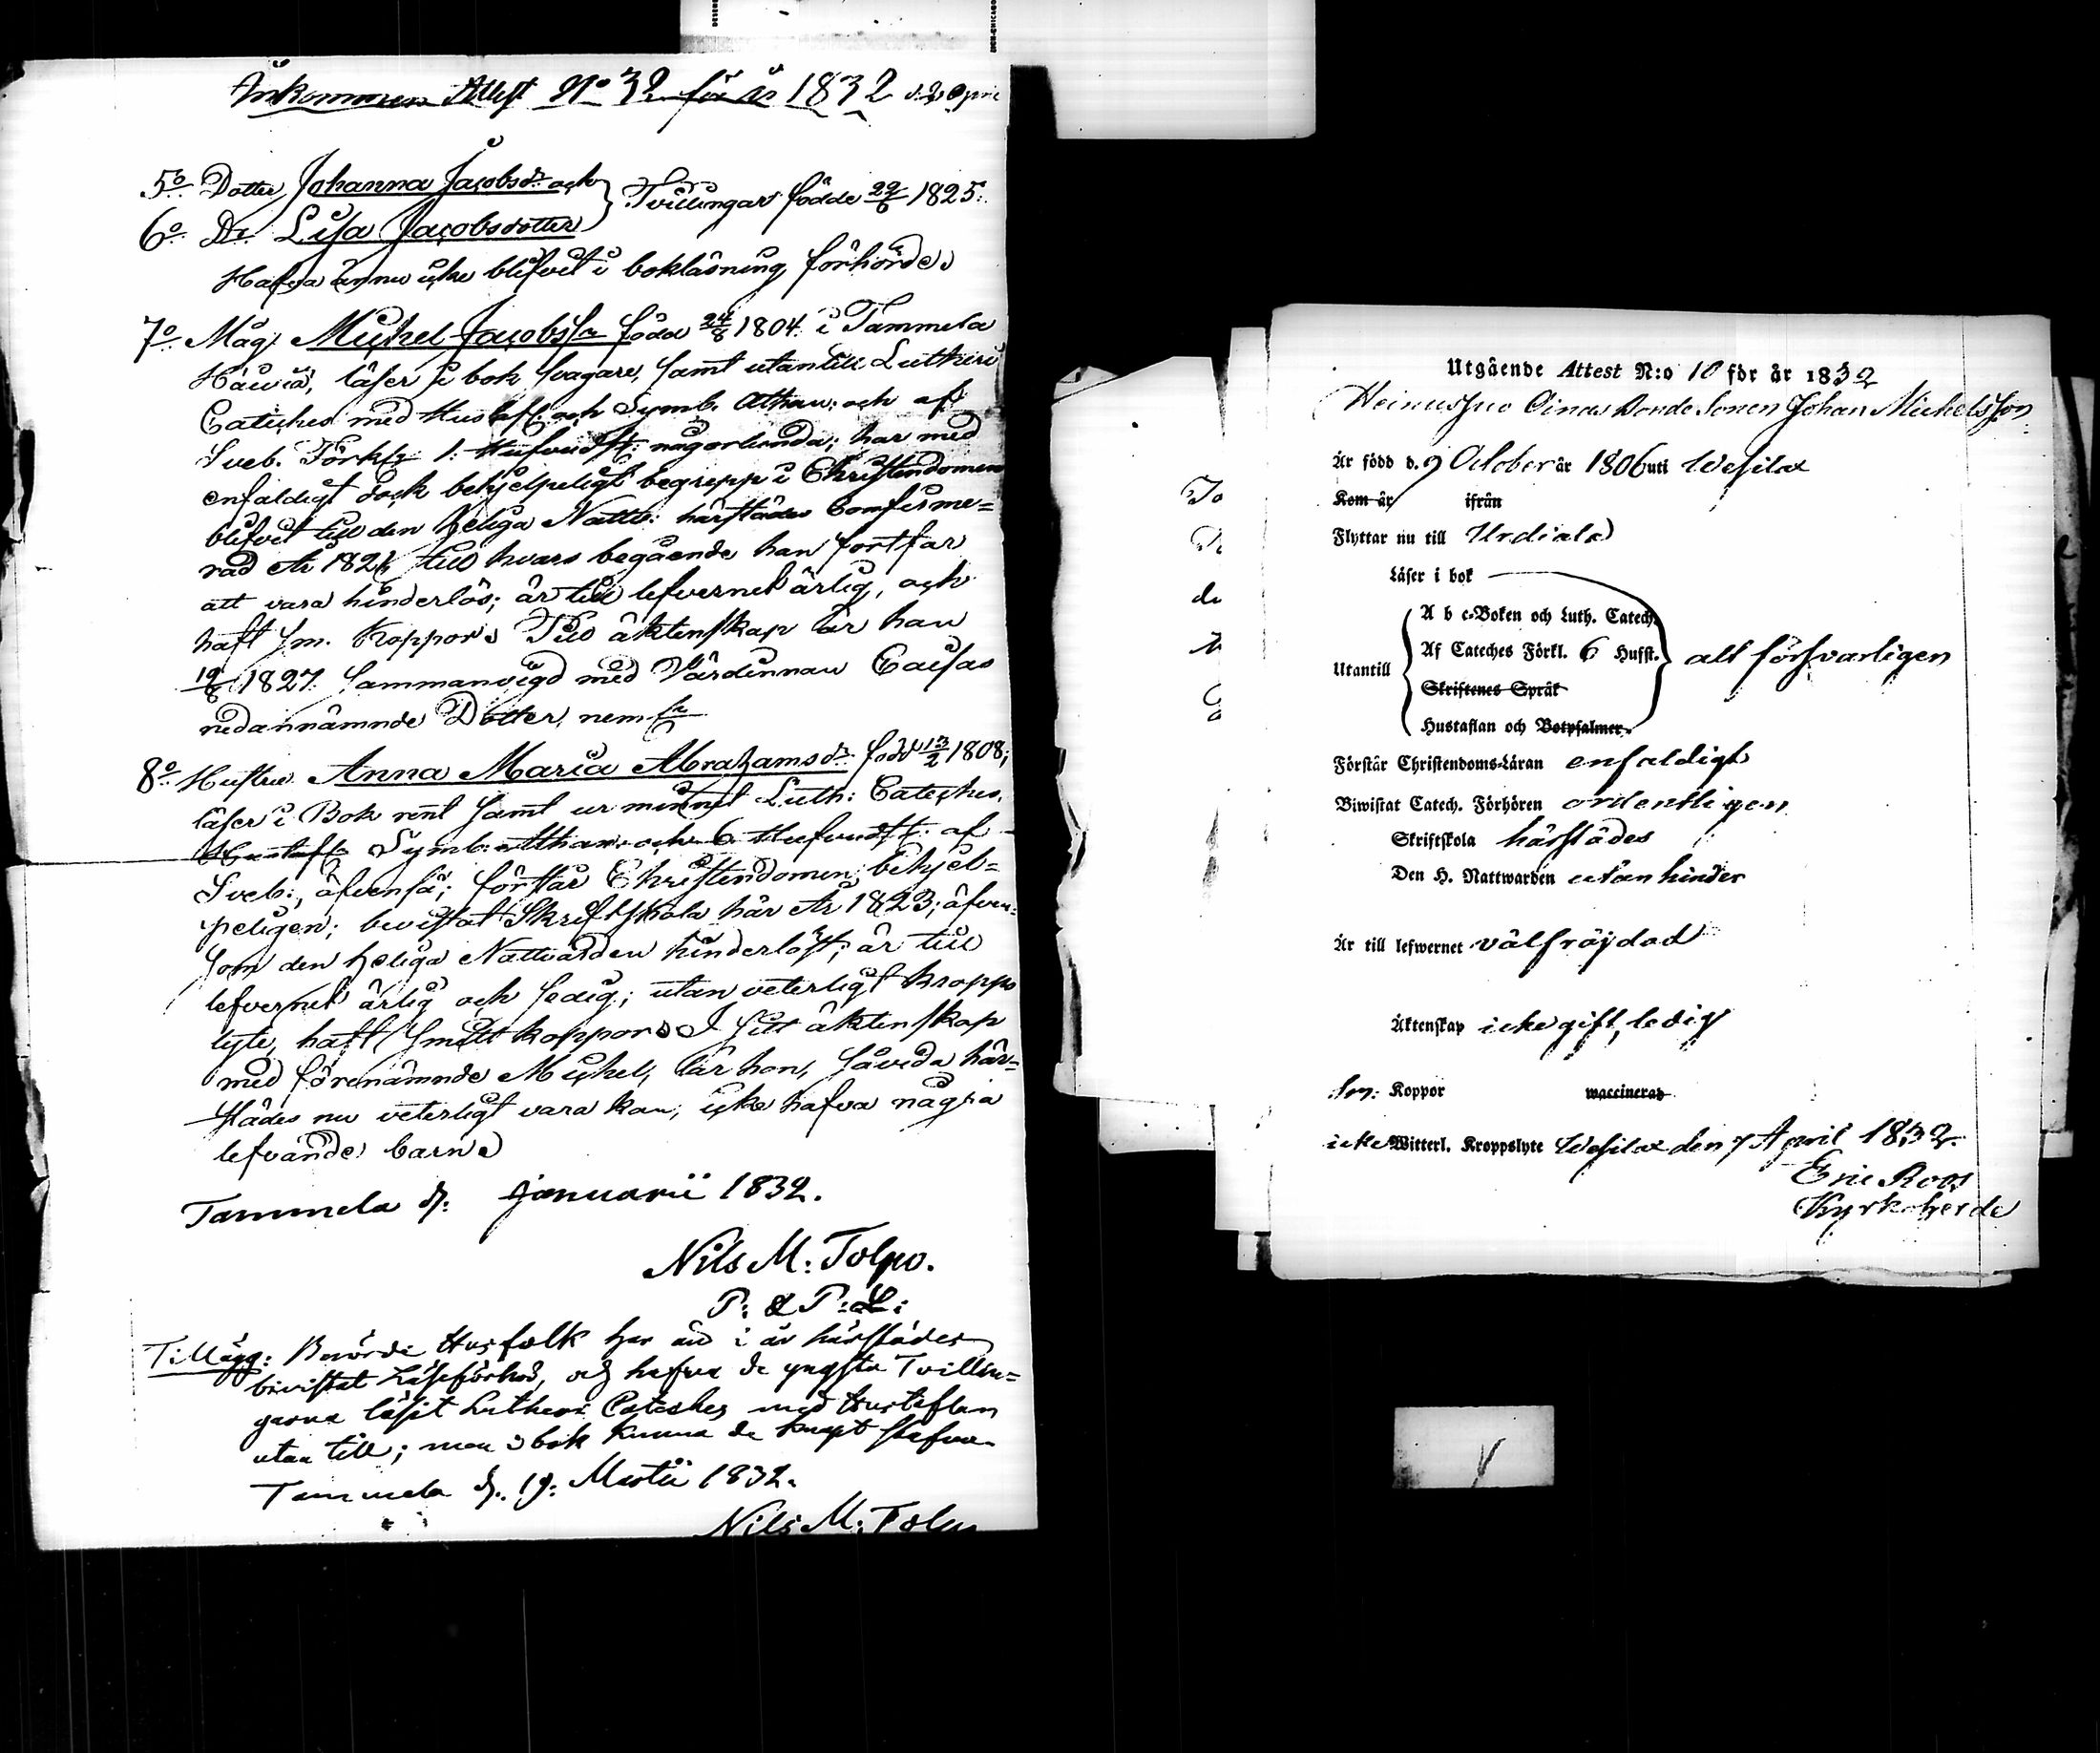 Inkommen Attest No 32 för år 1832
5o Dotter Johanna Jacobsdr och
6o Dr Lisa Jacobsdotter } Tvillingar födde 22/6 1825.
Hafva ännu icke blifvit i bokläsning förhörde.
7o Måg Michel Jacobsson född 24/8 1804 i Tammela
läser i bok svagare, samt utantill Lutheri
Cateches med Hustafl. och Symb. Athan: och af
Sveb. Förkl. 1. Hufvudst: någorlunda; har med
enfaldigt dock behjelpeligt begrepp i Christendomen
blifvit till den heliga Nattv: härstädes Confirme=
rad År 1821, till hvars begående han fortfar
att vara hinderlös; är till lefvernet ärlig, och
haft Sm. Koppor. Till äktenskap är han
1827 sammanvigd med Värdinnan Caisas
nedannämnde Dotter, neml.
8o Hustru Anna Maria Abrahamsdr född 13/2 1808;
läser i Bok rent samt ur minnet Luth: Cateches,
Hustafl. Symb: Athan: och 6 Hufvudst: af
Sveb:, äfvenså; förstår Christendomen behjel=
peligen; bevistat Skriftskola här År 1823; äfven=
som den heliga Nattvarden hinderlöst; är till
lefvernet ärlig och sedig; utan veterligt kropps
lyte, haft Smittkoppor. I sitt äktenskap
med förenämnde Michel, lär hon, såvida här=
städes nu veterligt vara kan, icke hafva några
lefvande barn.
Tammela d. Januarii 1832.
Nils M: Tolpo.
P: & P: L:
Tillägg: Berörde Husfolk har än i år härstädes
bivistat Läseförhör, och hafva de yngsta Tvillin=
garna läsit Lutheri Cateches med Hustaflan
utan till; men i bok kunna de knapt stafva.
Tammela d. 19. Martii 1832.
Nils M: Tolp
Utgående Attest N:o 10 för år 1832
Heinusuo Oinas Bonde Sonen Johan Michelsson
Är född d. 9 October år 1806 uti Wesilax
Kom år ifrån
Flyttar nu till Urdiala
Läser i bok
Utantill
A b c-Boken och Luth. Catech.
Af Cateches Förkl. 6 Hufst. allt försvarligen
Skriftenes Språk
Hustaflan och Botpsalmer.
Förstår Christendoms-Läran enfaldigt
Biwistat Catech. Förhören ordentligen
Skriftskola härstädes
Den H. Nattwarden utan hinder
Är till lefwernet välfräjdad
Äktenskap icke gift, ledig
Sm: Koppor waccinerad
icke Witterl. Kroppslyte Wesilax den 7 April 1832.
Eric Roos
Kyrkoherde